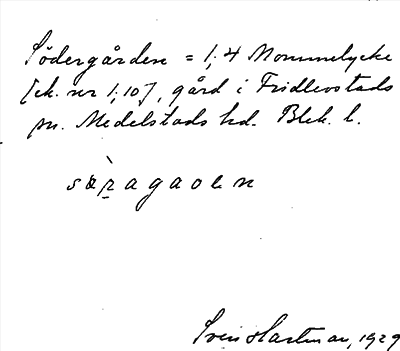 Södergården = 1:4 Mommelycke
[ek. nr 1:10], gård i Fridlevstads
sn. Medelstads hd. Blek. l.
Sven Hartman, 1929